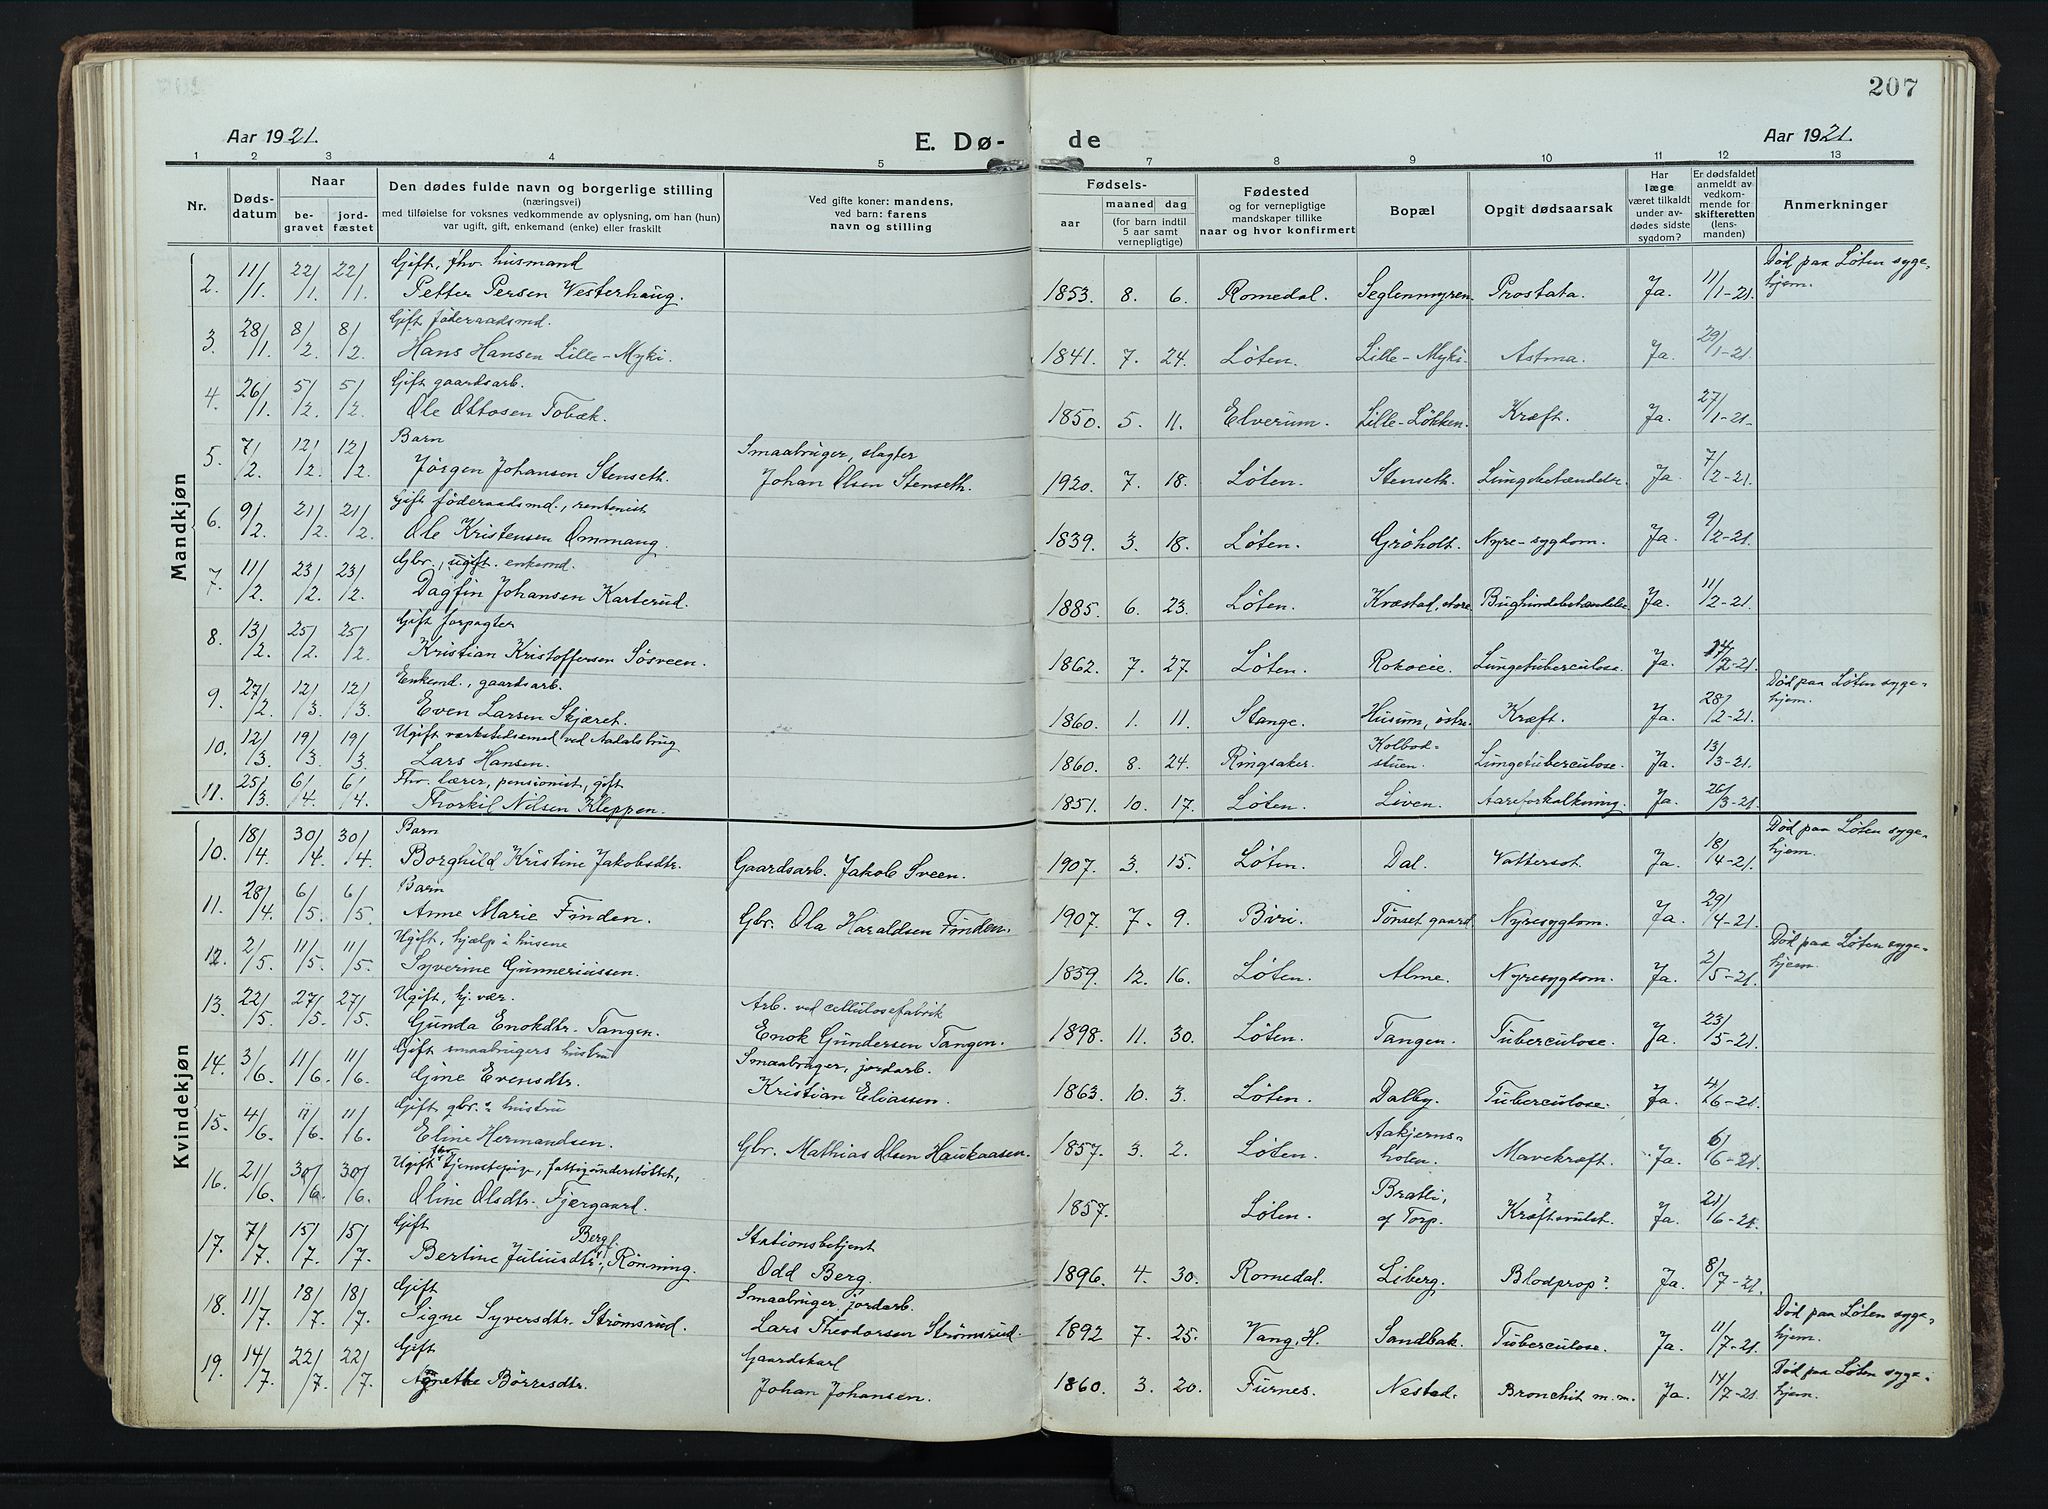 207
Aar 1921.
E. Dø-
de
Aar 1921.
1 2 3 4 5 7 8 9 10 11 12 13
Nr.
Døds-
datum
Naar
be-
gravet
jord-
fæstet
Den dødes fulde navn og borgerlige stilling
(næringsvei)
med tilføielse for voksnes vedkommende av oplysning, om han (hun)
var ugift, gift, enkemand (enke) eller fraskilt
Ved gifte koner: mandens,
ved barn: farens
navn og stilling
Fødsels-
aar
maaned dag
(for barn indtil
5 aar samt
vernepligtige)
Fødested
og for vernepligtige
mandskaper tillike
naar og hvor konfirmert
Bopæl
Opgit dødsaarsak
Har
læge
været tilkaldt
under av-
dødes sidste
sygdom?
Er dødsfaldet
anmeldt av
vedkom-
mende for
skifteretten
(lens-
manden)
Anmerkninger
Mandkjøn
Gift, fhv. husmand Død paa Løten syge-
2. 11/1 22/1 22/1 Petter Persen Westerhaug. 1853. 8. 6. Romedal. Seglenmyren. Prostata. Ja. 11/1-21. hjem.
Gift føderaadsmd.
3. 28/1 8/2 8/2 Hans Hansen Lille-Myki. 1841. 7. 24. Løten. Lille-Myki. Astma. Ja. 29/1-21.
Gift gaardsarb.
4. 26/1 5/2 5/2 Ole Ottosen Tobæk. 1850. 5. 11. Elverum. Lille-Løkken. Kræft. Ja. 27/1-21.
Barn Smaabruger, slagter
5. 7/2 12/2 12/2 Jørgen Johansen Stenseth. Johan Olsen Stenseth. 1920. 7. 18. Løten. Stenseth. Lungebetændelse. Ja. 7/2-21.
Gift føderaadsmd., rentenist
6. 9/2 21/2 21/2 Ole Kristensen Ommang. 1839. 3. 18. Løten. Grøholt. Nyre-sygdom. Ja. 9/2-21.
Gbr., ugift. enkemd.
7. 11/2 23/2 23/2 Dagfin Johansen Karterud. 1885. 6. 23. Løten. Kræstad, store Bughindebetændelse Ja. 11/2-21.
Gift forpagter
8. 13/2 25/2 25/2 Kristian Kristoffersen Søsveen. 1862. 7. 27. Løten. Lungetuberculose. Ja. 14/2-21.
Enkemd., gaardsarb. Død paa Løten syge-
9. 27/2 12/3 12/3 Even Larsen Skjæret. 1860. 1. 11. Stange. Husum, østre Kræft. Ja. 28/2-21. hjem.
Ugift værkstedssmed ved Aadalsbrug Kolbod-
10. 12/3 19/3 19/3 Lars Hansen. 1860. 8. 24. Ringsaker. stuen. Lungetuberculose. Ja. 13/3-21.
Fhv. lærer, pensionist, gift
11. 25/3 6/4 6/4 Thorkil Nilsen Kleppen. 1851. 10. 17. Løten. Liven. Aareforkalkning. Ja. 26/3-21.
Kvindekjøn
Barn Død paa Løten syge-
10. 18/4 30/4 30/4 Borghild Kristine Jakobsdtr. Gaardsarb. Jakob Sveen. 1907. 3. 15. Løten. Dal. Vattersot. Ja. 18/4-21. hjem.
Barn
11. 28/4 6/5 6/5 Anne Marie Finden. Gbr. Ola Haraldsen Finden. 1907. 7. 9. Biri. Tønset gaard. Nyresygdom. Ja. 29/4-21.
Ugift, hjælp i husene Død paa Løten syge-
12. 2/5 11/5 11/5 Syverine Gunneriussen. 1859. 12. 16. Løten. Alme. Nyresygdom. Ja. 2/5-21. hjem.
Ugift, hj. vær. Arb. ved cellulosefabrik
13. 22/5 27/5 27/5 Gunda Enoksdtr. Tangen. Enok Gundersen Tangen. 1898. 11. 30. Løten. Tangen. Tuberculose. Ja. 23/5-21.
Gift smaabrugers hustru Smaabruger, jordarb.
14. 3/6 11/6 11/6 Gine Evensdtr. Kristian Eliassen. 1863. 10. 3. Løten. Dalby. Tuberculose. Ja. 4/6-21.
Gift gbr.s hustru Aakjerns-
15. 4/6 11/6 11/6 Eline Hermandsen. Gbr. Mathias Olsen Haukaasen. 1857. 3. 2. Løten. holen. Mavekræft. Ja. 6/6-21.
Ugift fhv. tjenestepige, fattigunderstøttet, Bratli,
16. 21/6 30/6 30/6 Oline Olsdtr. Fjergaard. 1857. Løten. af Torp. Kræftsvulst. ? Ja. 21/6-21.
Gift Berg f. Stationsbetjent
17. 7/7 15/7 15/7 Bertine Juliusdtr., Rønning. Odd Berg. 1896. 4. 30. Romedal. Liberg. Blodprop? Ja. 8/7-21.
Gift Smaabruger, jordarb. Død paa Løten syge-
18. 11/7 18/7 18/7 Signe Syversdtr. Strømsrud. Lars Theodorsen Strømsrud. 1892 7. 25. Vang, H. Sandbak. Tuberculose. Ja. 11/7-21. hjem.
Gift Gaardskarl Død paa Løten syge-
19. 14/7 22/7 22/7 Agnethe Børresdtr. Johan Johansen. 1860. 3. 20. Furnes. Nestad. Bronchit m.m. Ja. 14/7-21. hjem.